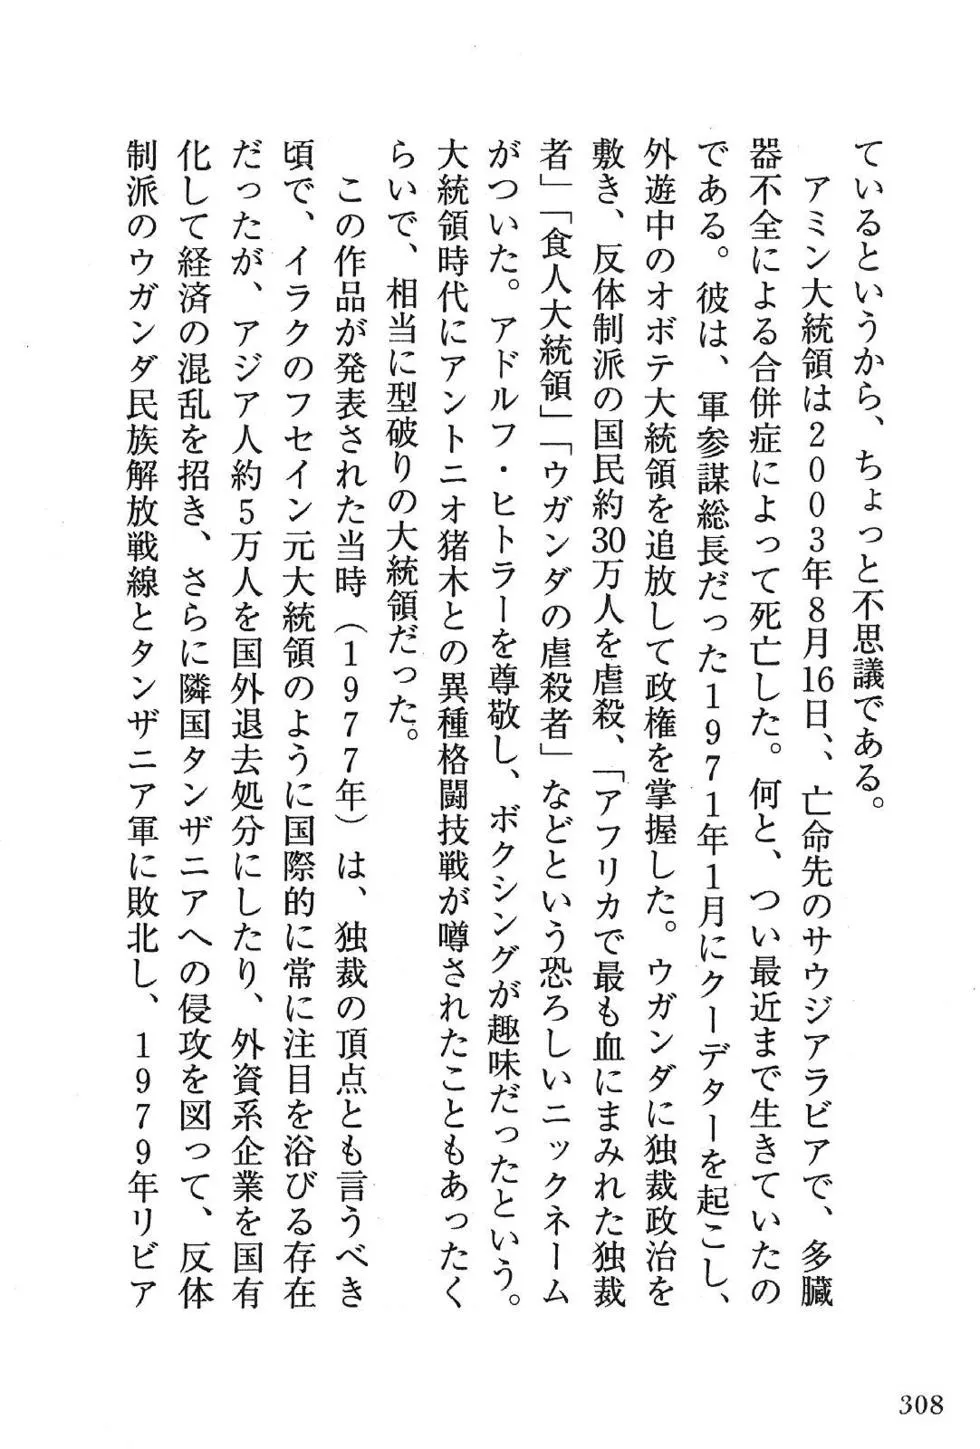 ているというから、ちょっと不思議である。
　アミン大統領は２００３年８月16日、、亡命先のサウジアラビアで、多臓
器不全による合併症によって死亡した。何と、つい最近まで生きていたの
である。彼は、軍参謀総長だった１９７１年１月にクーデターを起こし、
外遊中のオボテ大統領を追放して政権を掌握した。ウガンダに独裁政治を
敷き、反体制派の国民約30万人を虐殺、「アフリカで最も血にまみれた独裁
者」「食人大統領」「ウガンダの虐殺者」などという恐ろしいニックネーム
がついた。アドルフ・ヒトラーを尊敬し、ボクシングが趣味だったという。
大統領時代にアントニオ猪木との異種格闘技戦が噂されたこともあったく
らいで、相当に型破りの大統領だった。
　この作品が発表された当時（１９７７年）は、独裁の頂点とも言うべき
頃で、イラクのフセイン元大統領のように国際的に常に注目を浴びる存在
だったが、アジア人約５万人を国外退去処分にしたり、外資系企業を国有
化して経済の混乱を招き、さらに隣国タンザニアへの侵攻を図って、反体
制派のウガンダ民族解放戦線とタンザニア軍に敗北し、１９７９年リビア
308